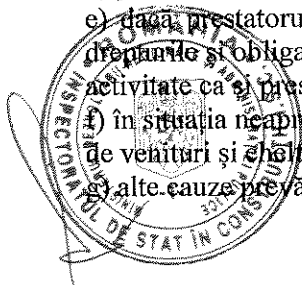 e) dacă prestatoru
drepturile și obliga
activitate ca și pres
f) în situația neapr
de venituri și chelt
g) alte cauze prevă
ROMÂNIA
INSPECTORATUL DE STAT ÎN CONSTRU